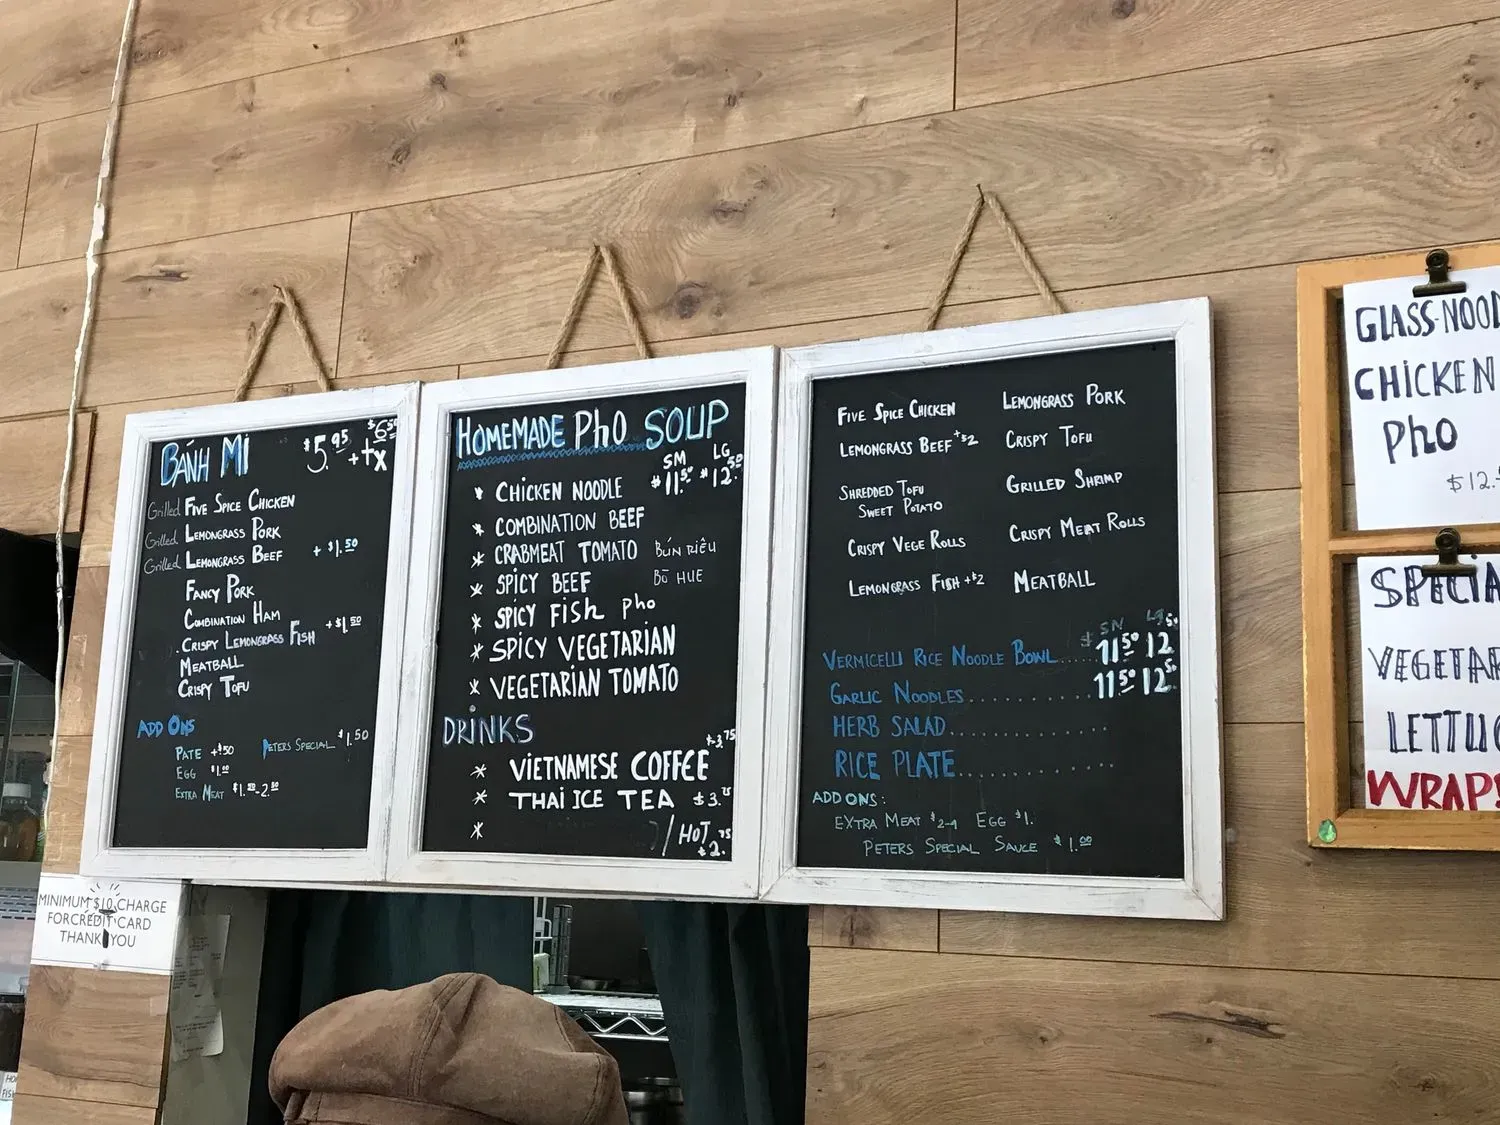 BÁNH MÌ $5.95 +tx
$6.50
Grilled FIVE SPICE CHICKEN
Grilled LEMONGRASS PORK
Grilled LEMONGRASS BEEF + $1.50
FANCY PORK
COMBINATION HAM
CRISPY LEMONGRASS FISH +$1.50
MEATBALL
CRISPY TOFU
ADD ONS
PATE +$.50 PETERS SPECIAL $1.50
EGG $1.00
EXTRA MEAT
HOMEMADE PhO SOUP
SM LG
* CHICKEN NOODLE $11.50 $12.50
* COMBINATION BEEF
* CRABMEAT TOMATO BÚN RIÊU
* SPICY BEEF BÒ HUE
* SPICY FISH Pho
* SPICY VEGETARIAN
* VEGETARIAN TOMATO
DRINKS
* VIETNAMESE COFFEE $3.75
* THAI ICE TEA $3.75
* / HOT $2.75
FIVE SPICE CHICKEN LEMONGRASS PORK
LEMONGRASS BEEF +$2 CRISPY TOFU
SHREDDED TOFU GRILLED SHRIMP
SWEET POTATO
CRISPY VEGE ROLLS CRISPY MEAT ROLLS
LEMONGRASS FISH +$2 MEATBALL
$ SM LG
VERMICELLI RICE NOODLE BOWL.... 11.50 12.50
GARLIC NOODLES.......... 11.50 12.50
HERB SALAD............
RICE PLATE............
ADD ONS:
EXTRA MEAT $2-4 EGG $1.
PETERS SPECIAL SAUCE $1.00
GLASS-NOOD
CHICKEN
PhO
$12.
SPECIA
VEGETAR
LETTUC
WRAPS
MINIMUM $10 CHARGE
FOR CREDIT CARD
THANK YOU